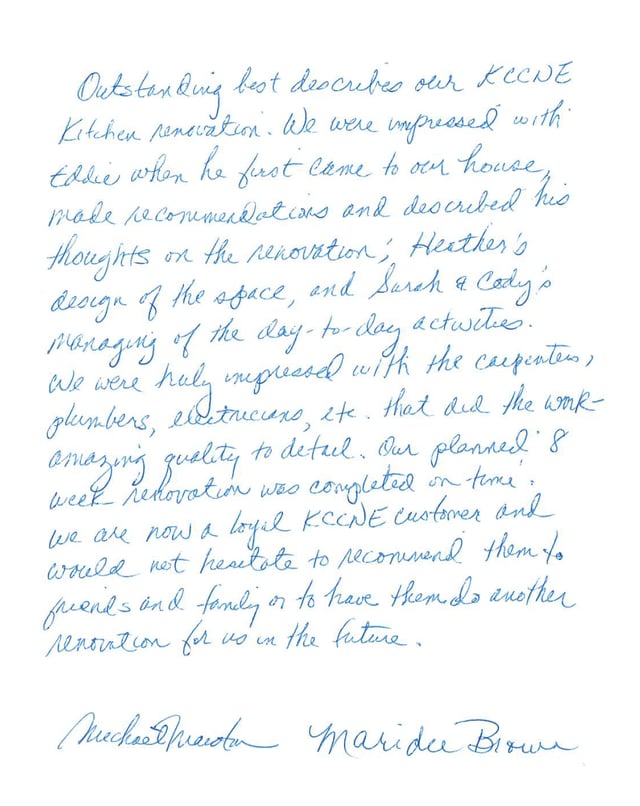 Outstanding best describes our KCCNE
Kitchen renovation. We were impressed with
Eddie when he first came to our house,
made recommendations and described his
thoughts on the renovation; Heather's
design of the space, and Sarah & Cody's
managing of the day-to-day activities.
We were truly impressed with the carpenters,
plumbers, electricians, etc. that did the work-
amazing quality to detail. Our planned 8
week renovation was completed on time!
We are now a loyal KCCNE customer and
would not hesitate to recommend them to
friends and family or to have them do another
renovation for us in the future.
Michael Maridee Brown